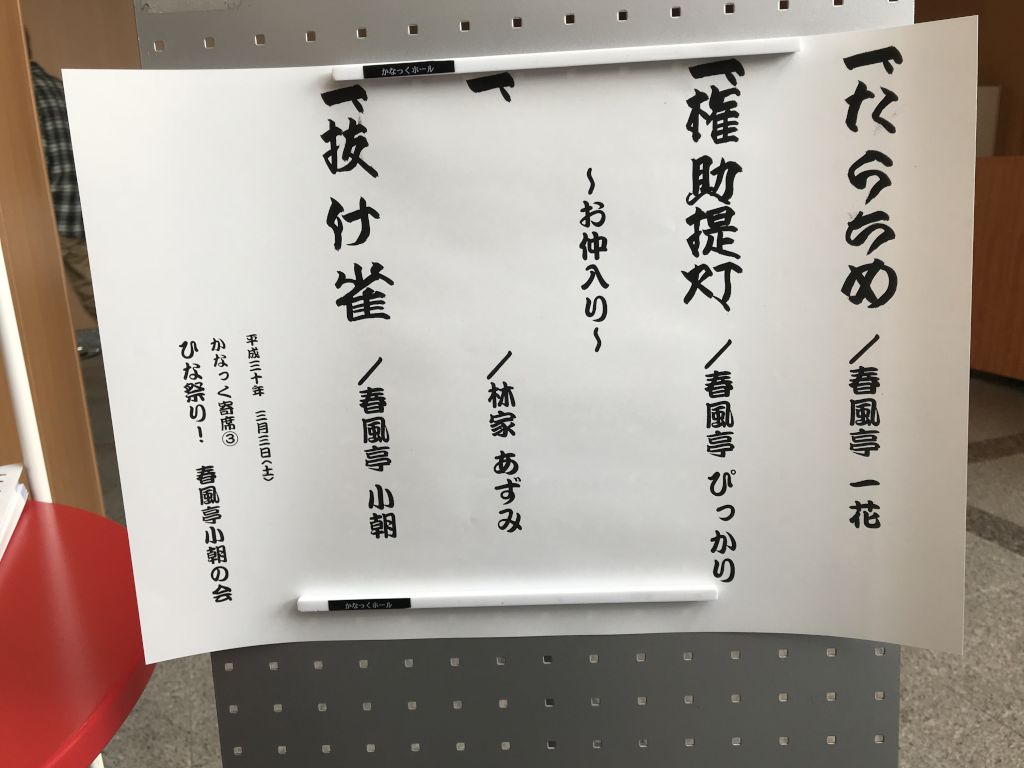 一、たらちめ ／春風亭 一花
一、権助提灯 ／春風亭 ぴっかり
～お仲入り～
一、 ／林家 あずみ
一、抜け雀 ／春風亭 小朝
平成三十年 三月三日(土)
かなっく寄席③
ひな祭り! 春風亭小朝の会
かなっくホール
かなっくホール